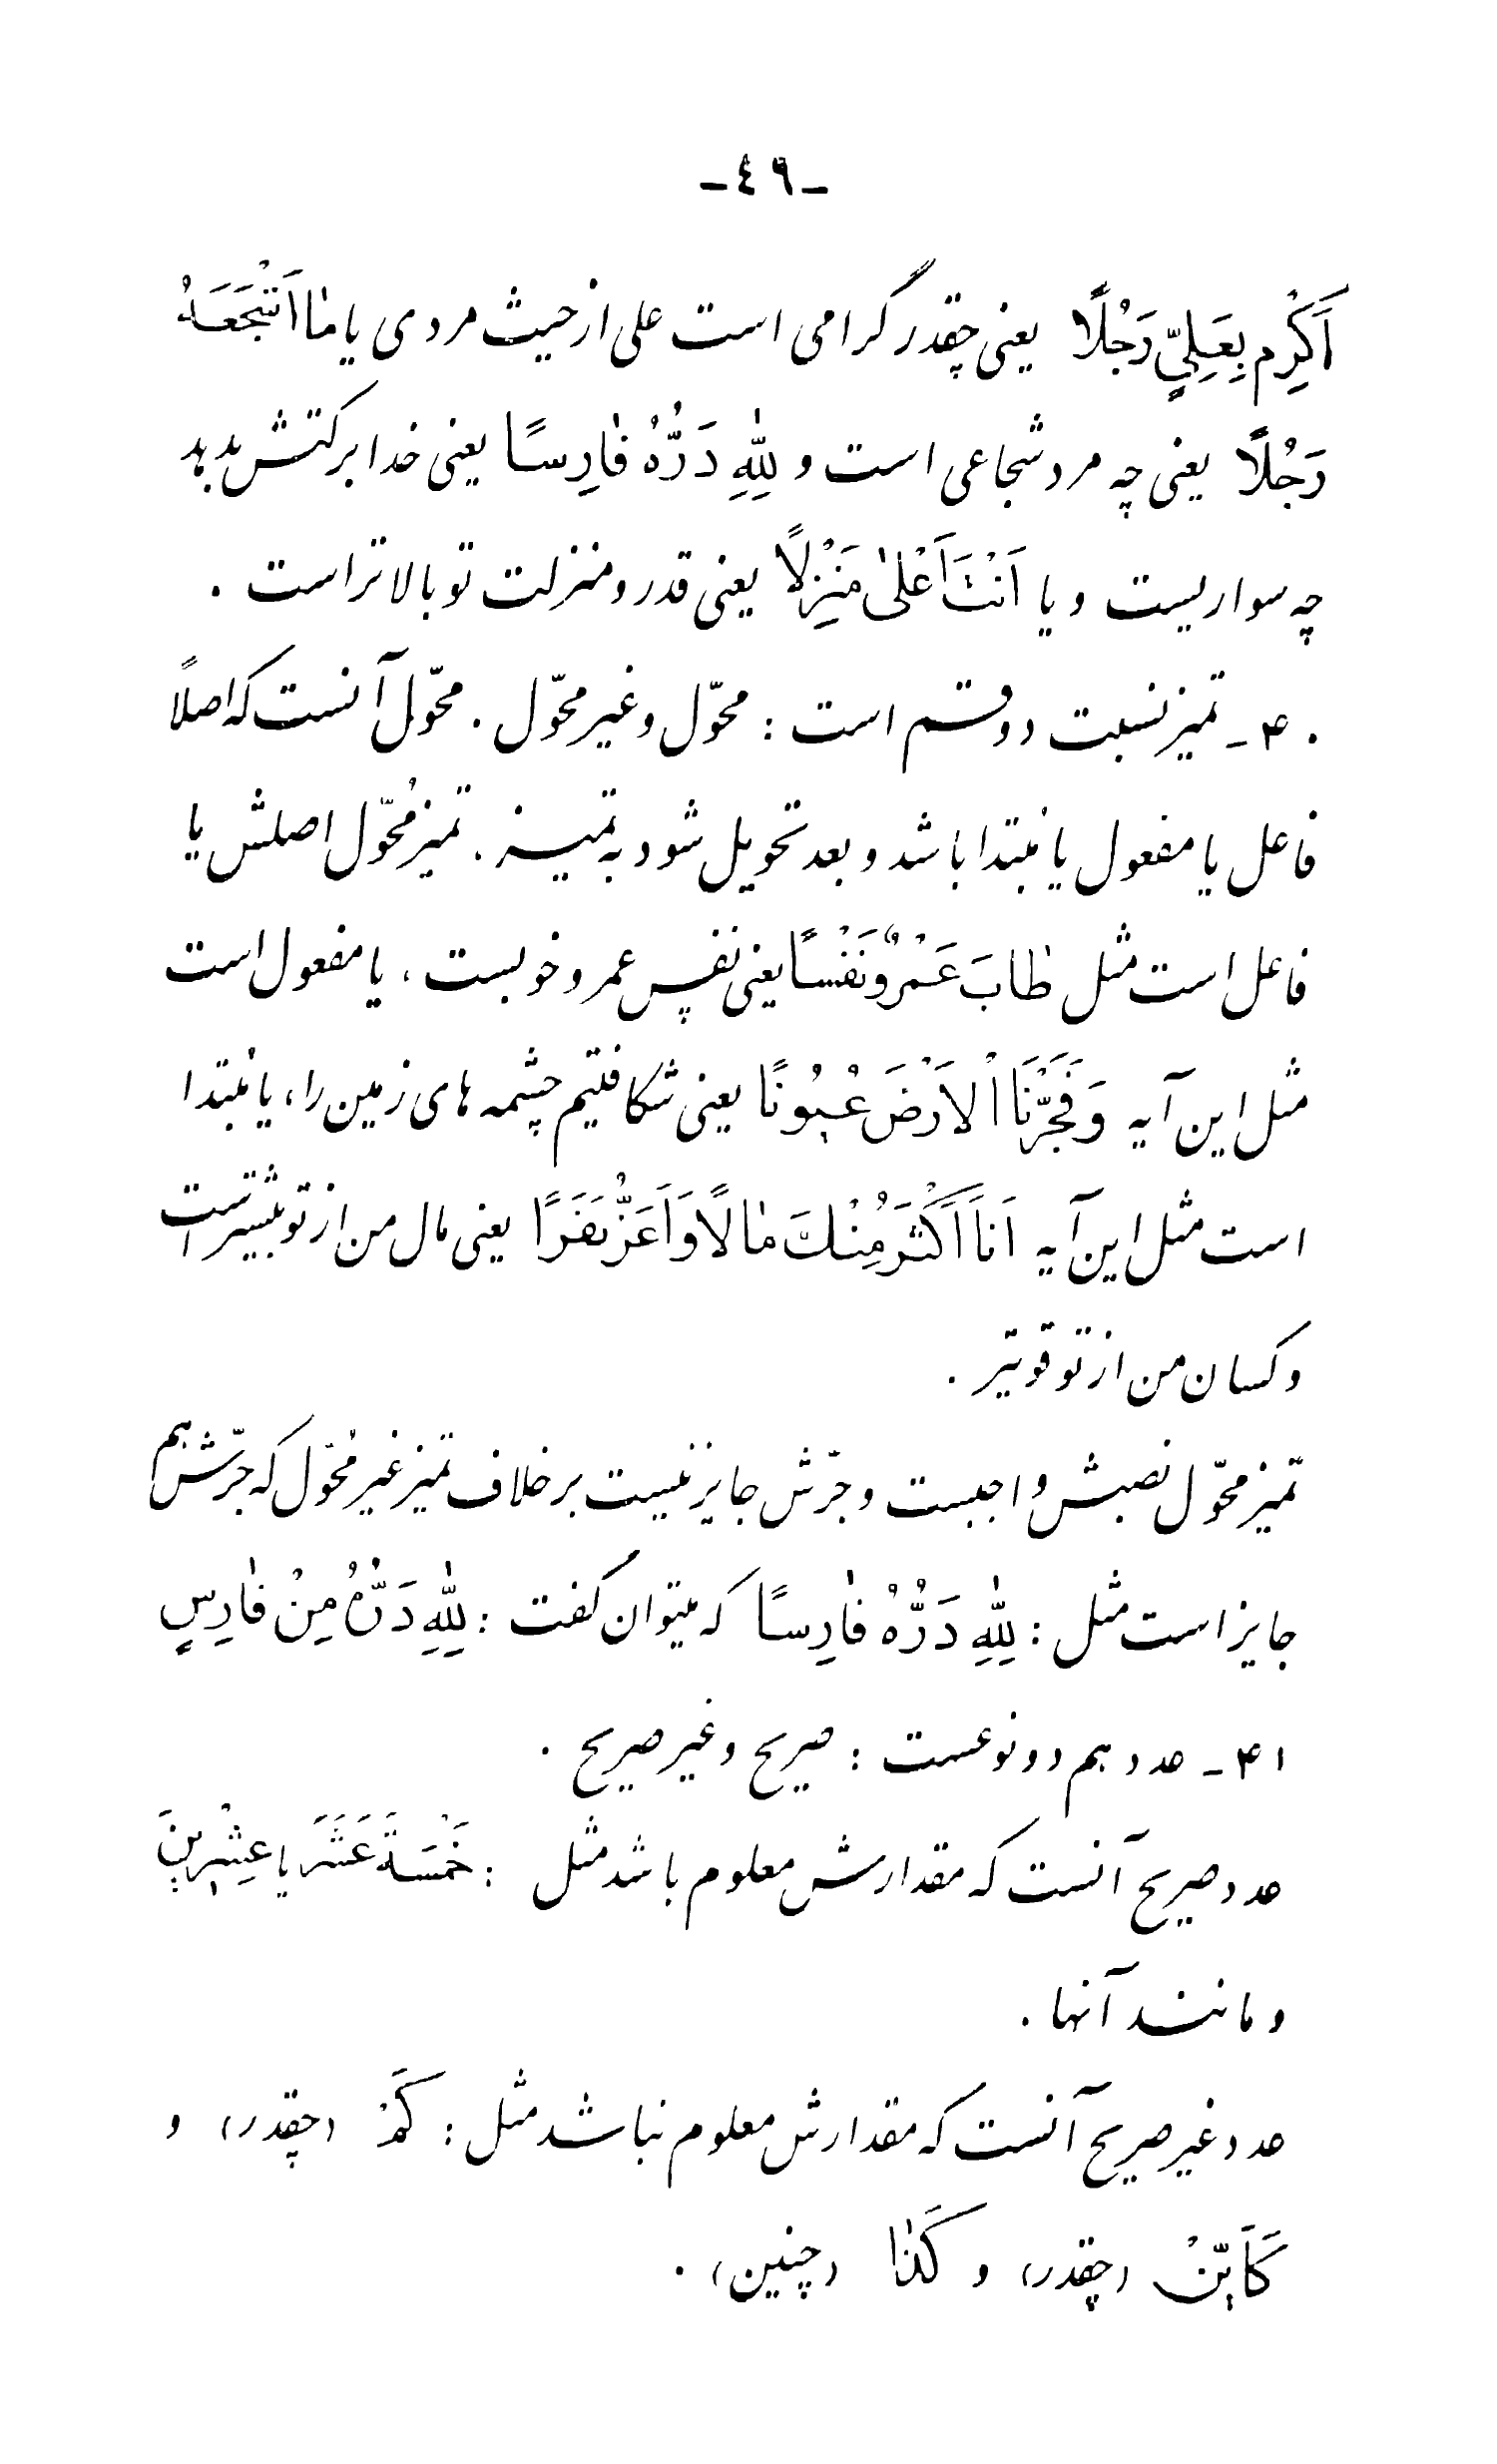 -٤٩-
اَكْرِم بِعَلِيٍّ رَجُلًا یعنی چقدر گرامی است علی از حیث مردی یا مٰا اَشْجَعَهُ
رَجُلًا یعنی چه مرد شجاعی است و لِلّٰهِ دَرُّهُ فٰارِسًا یعنی خدا برکتش بدهد
چه سواریست و یا اَنْتَ اَعْلىٰ مَنْزِلًا یعنی قدر و منزلت تو بالاتر است .
۴۰ـ تمیز نسبت دو قسم است : محوّل و غیر محوّل . محوّل آنست که اصلاً
فاعل یا مفعول یا مُبتدا باشد و بعد تحویل شود به تمیز . تمیز مُحوّل اصلش یا
فاعل است مثل طٰابَ عَمْرٌو نَفْسًا یعنی نفس عمرو خوبست ، یا مفعول است
مثل این آیه وَ فَجَّرْنَا اْلاَرْضَ عُيُونًا یعنی شکافتیم چشمه های زمین را، یا مُبتدا
است مثل این آیه اَنَا اَكْثَرُ مِنْكَ مٰالًا وَ اَعَزُّ نَفَرًا یعنی مال من از تو بیشتر است
و کسان من از تو قویتر .
تمیز محوّل نصبش واجبست و جرّش جایز نیست بر خلاف تمیز غیر مُحوّل که جرّش هم
جایز است مثل : لِلّٰهِ دَرُّهُ فٰارِسًا که میتوان گفت : لِلّٰهِ دَرُّهُ مِنْ فٰارِسٍ
۴۱ـ عدد هم دو نوعست : صریح و غیر صریح .
عدد صریح آنست که مقدارش معلوم باشد مثل : خَمْسَةَ عَشَرَ یا عِشْرينَ
و مانند آنها .
عدد غیر صریح آنست که مقدارش معلوم نباشد مثل : كَمْ (چقدر) و
كَاَيِّنْ (چقدر) و كَذٰا (چنین) .